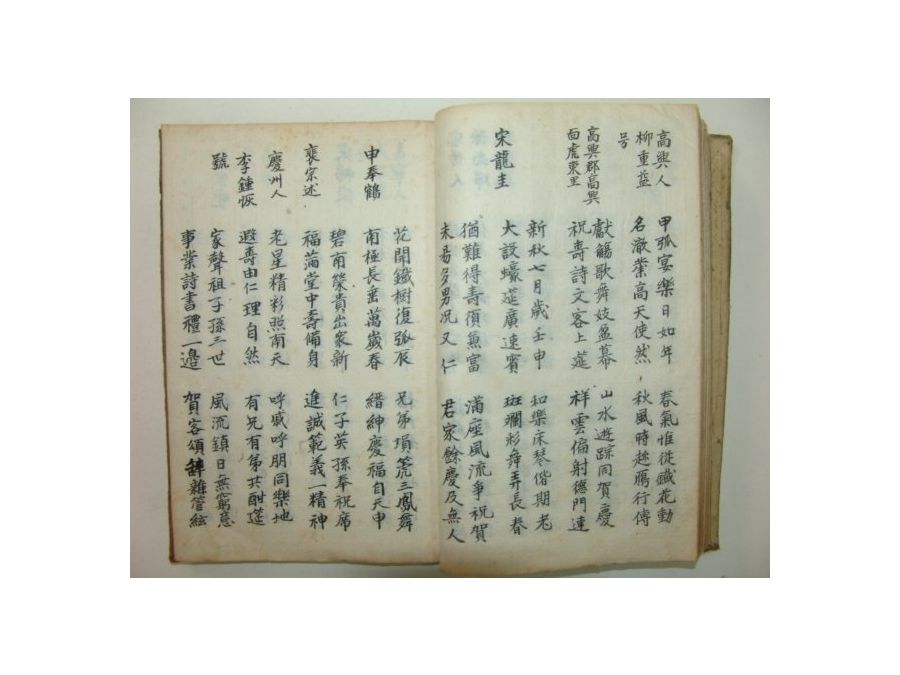 高興人 甲弧宴樂日如年 春氣惟從鐵花動
柳重益 名激業高天使然 秋風時趂鴈行傳
号 獻觴歌舞妓盈幕 山水遊踪同賀慶
高興郡高興
面虎東里 祝壽詩文客上莚 祥雲偏射德門連
新秋七月歲壬申 和樂床琴偕期老
宋龍圭 大設莚廣速賓 斑斕彩舞弄長春
猶難得壽須兼富 滿座風流爭祝賀
未易多男况又仁 君家餘慶及無人
花開鐵樹復弧辰 兄弟塤箎三鳳舞
申奉鶴 南極長垂萬歲春 縉紳慶福自天申
碧甫榮貴出家新 仁子英孫奉祝席
裵宗述 福滿堂中壽備身 進誠範義一精神
慶州人 老星精彩照南天 呼戚呼朋同樂地
李鍾恢 遐壽由仁理自然 有兄有弟共酣莚
家聲祖子孫三世 風流鎭日無窮意
號 事業詩書禮一邊 賀客頌辭雜管絃